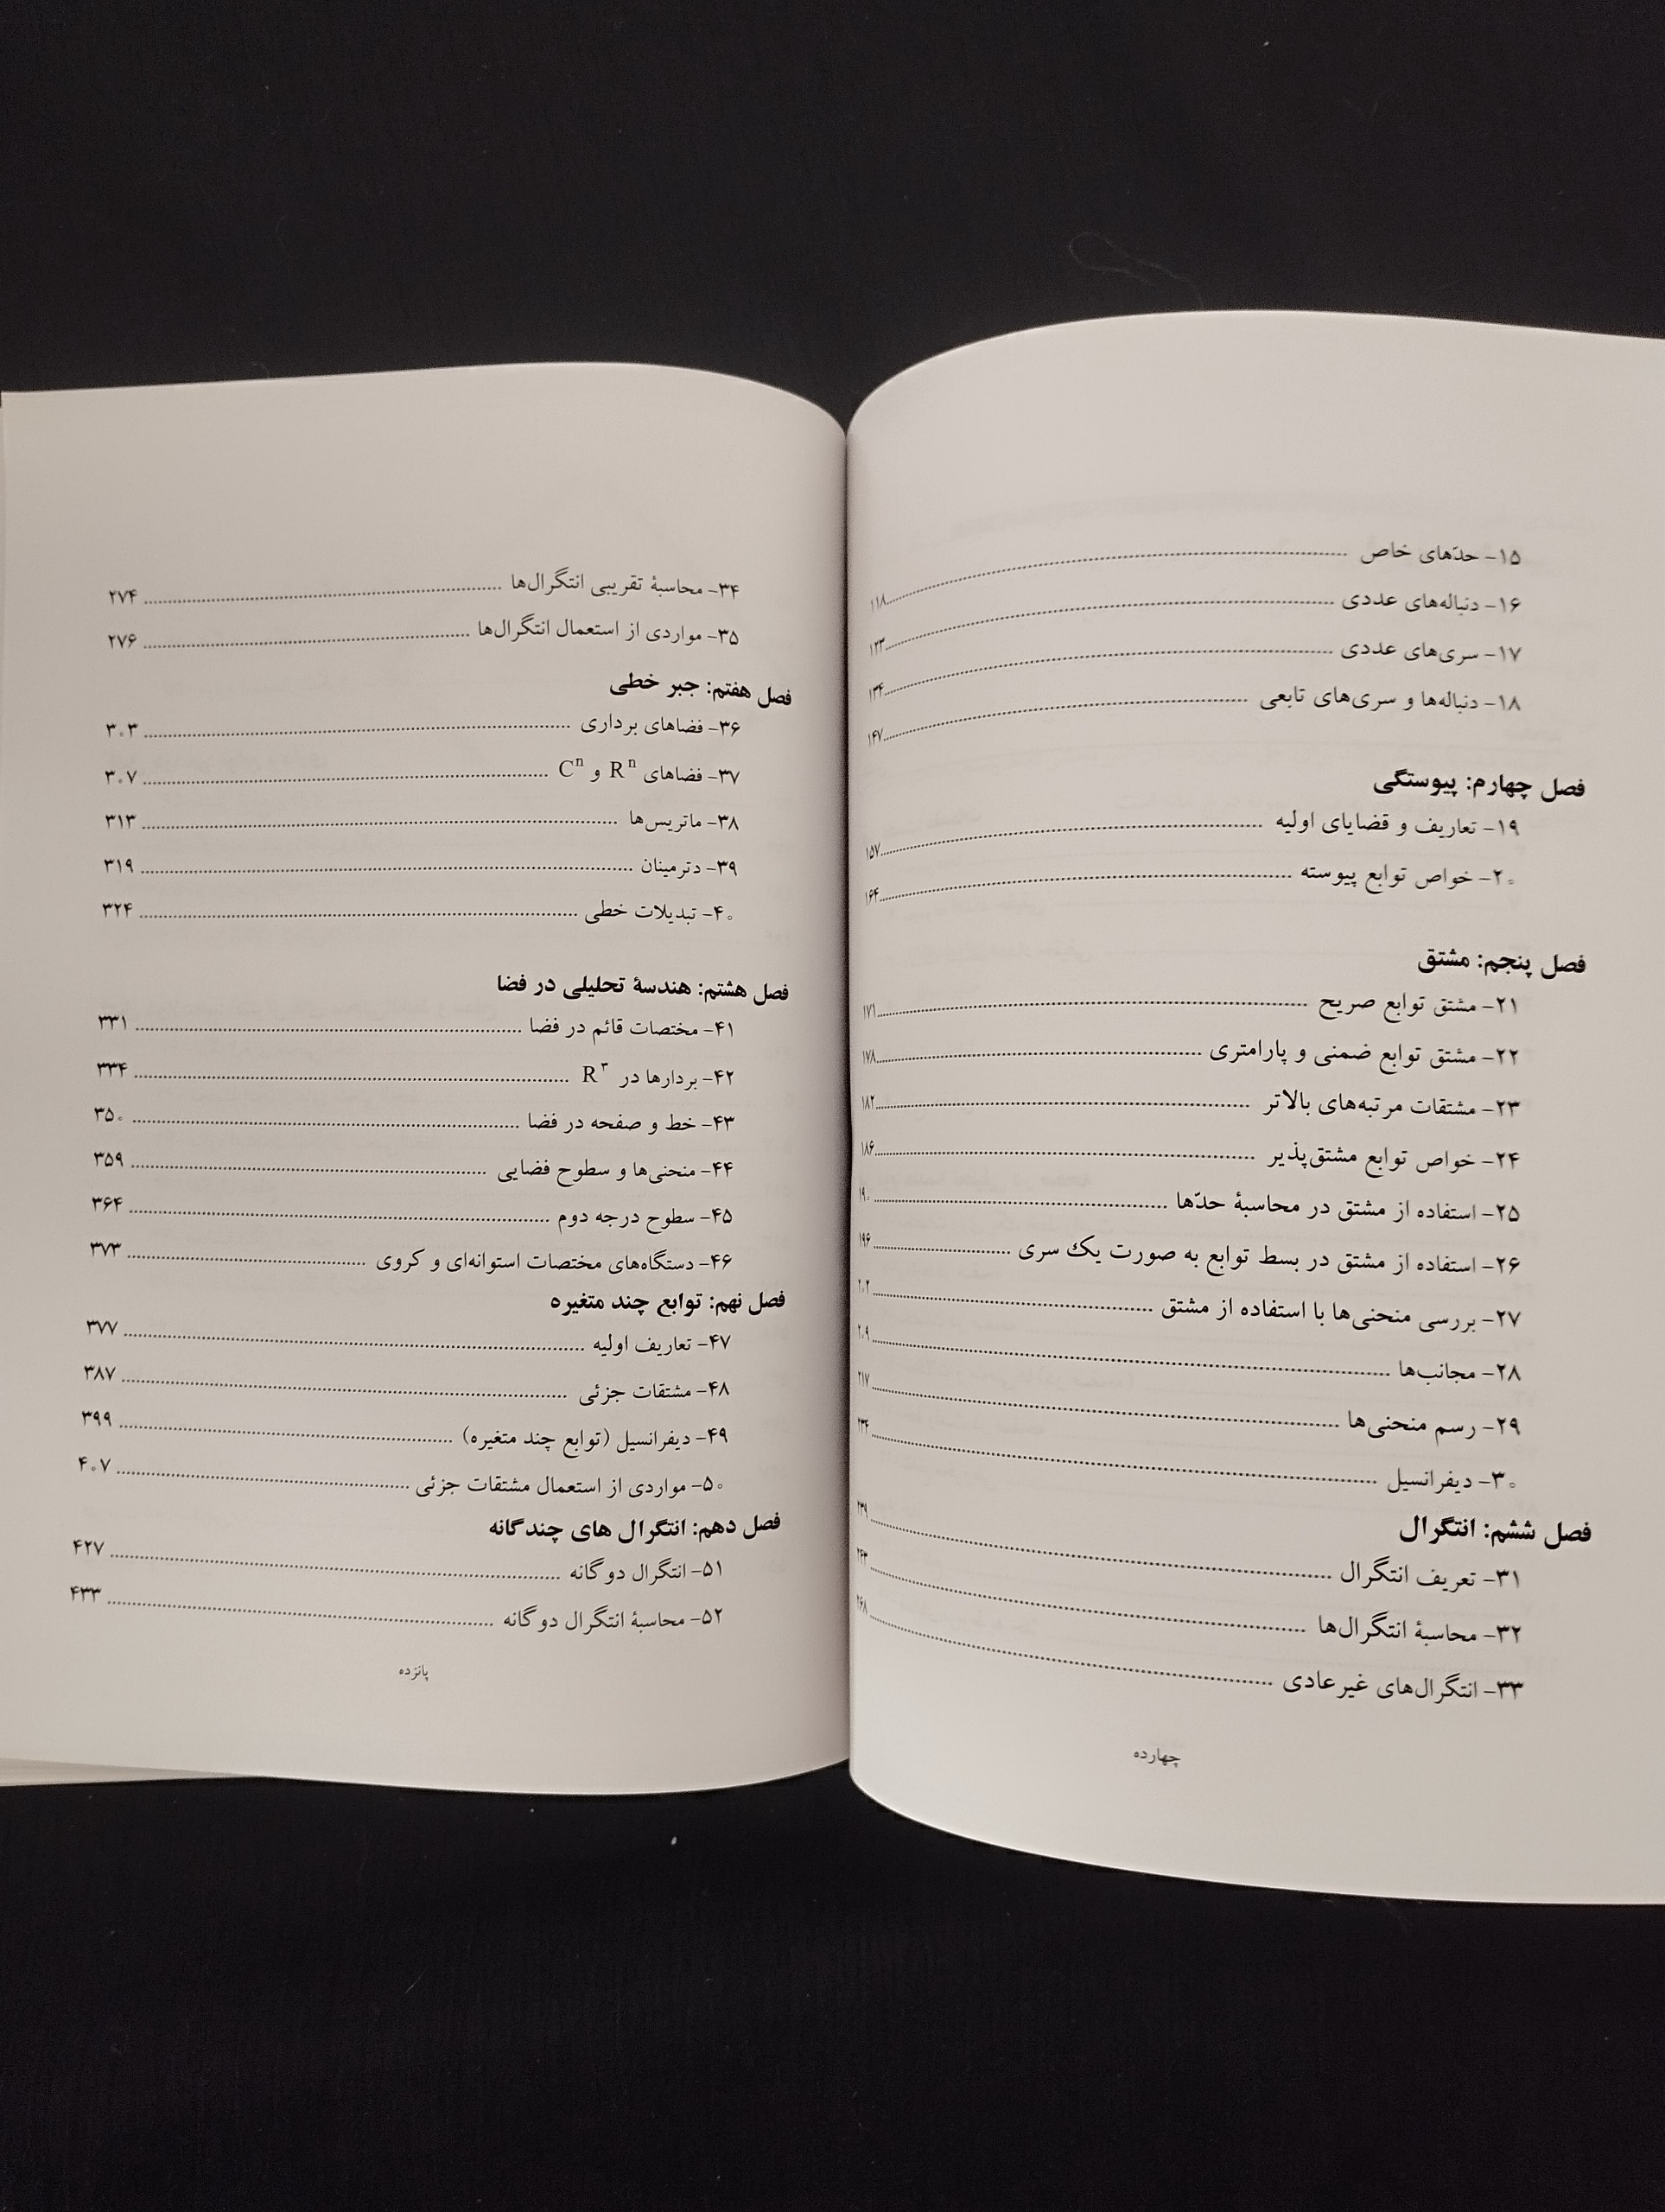 ۱۵- حدّهای خاص ........ ۱۱۸
۱۶- دنباله‌های عددی ........ ۱۲۳
۱۷- سری‌های عددی ........ ۱۳۴
۱۸- دنباله‌ها و سری‌های تابعی ........ ۱۴۷
فصل چهارم: پیوستگی
۱۹- تعاریف و قضایای اولیه ........ ۱۵۷
۲۰- خواص توابع پیوسته ........ ۱۶۴
فصل پنجم: مشتق
۲۱- مشتق توابع صریح ........ ۱۷۱
۲۲- مشتق توابع ضمنی و پارامتری ........ ۱۷۸
۲۳- مشتقات مرتبه‌های بالاتر ........ ۱۸۲
۲۴- خواص توابع مشتق‌پذیر ........ ۱۸۶
۲۵- استفاده از مشتق در محاسبهٔ حدّها ........ ۱۹۰
۲۶- استفاده از مشتق در بسط توابع به صورت یک سری ........ ۱۹۶
۲۷- بررسی منحنی‌ها با استفاده از مشتق ........ ۲۰۲
۲۸- مجانب‌ها ........ ۲۰۹
۲۹- رسم منحنی‌ها ........ ۲۱۷
۳۰- دیفرانسیل ........ ۲۳۴
فصل ششم: انتگرال
۳۱- تعریف انتگرال ........ ۲۳۹
۳۲- محاسبهٔ انتگرال‌ها ........ ۲۴۳
۳۳- انتگرال‌های غیرعادی ........ ۲۶۸
چهارده
۳۴- محاسبهٔ تقریبی انتگرال‌ها ........ ۲۷۴
۳۵- مواردی از استعمال انتگرال‌ها ........ ۲۷۶
فصل هفتم: جبر خطی
۳۶- فضاهای برداری ........ ۳۰۳
۳۷- فضاهای Rⁿ و Cⁿ ........ ۳۰۷
۳۸- ماتریس‌ها ........ ۳۱۳
۳۹- دترمینان ........ ۳۱۹
۴۰- تبدیلات خطی ........ ۳۲۴
فصل هشتم: هندسهٔ تحلیلی در فضا
۴۱- مختصات قائم در فضا ........ ۳۳۱
۴۲- بردارها در R^۳ ........ ۳۳۴
۴۳- خط و صفحه در فضا ........ ۳۵۰
۴۴- منحنی‌ها و سطوح فضایی ........ ۳۵۹
۴۵- سطوح درجه دوم ........ ۳۶۴
۴۶- دستگاه‌های مختصات استوانه‌ای و کروی ........ ۳۷۳
فصل نهم: توابع چند متغیره
۴۷- تعاریف اولیه ........ ۳۷۷
۴۸- مشتقات جزئی ........ ۳۸۷
۴۹- دیفرانسیل (توابع چند متغیره) ........ ۳۹۹
۵۰- مواردی از استعمال مشتقات جزئی ........ ۴۰۷
فصل دهم: انتگرال های چندگانه
۵۱- انتگرال دوگانه ........ ۴۲۷
۵۲- محاسبهٔ انتگرال دوگانه ........ ۴۳۳
پانزده